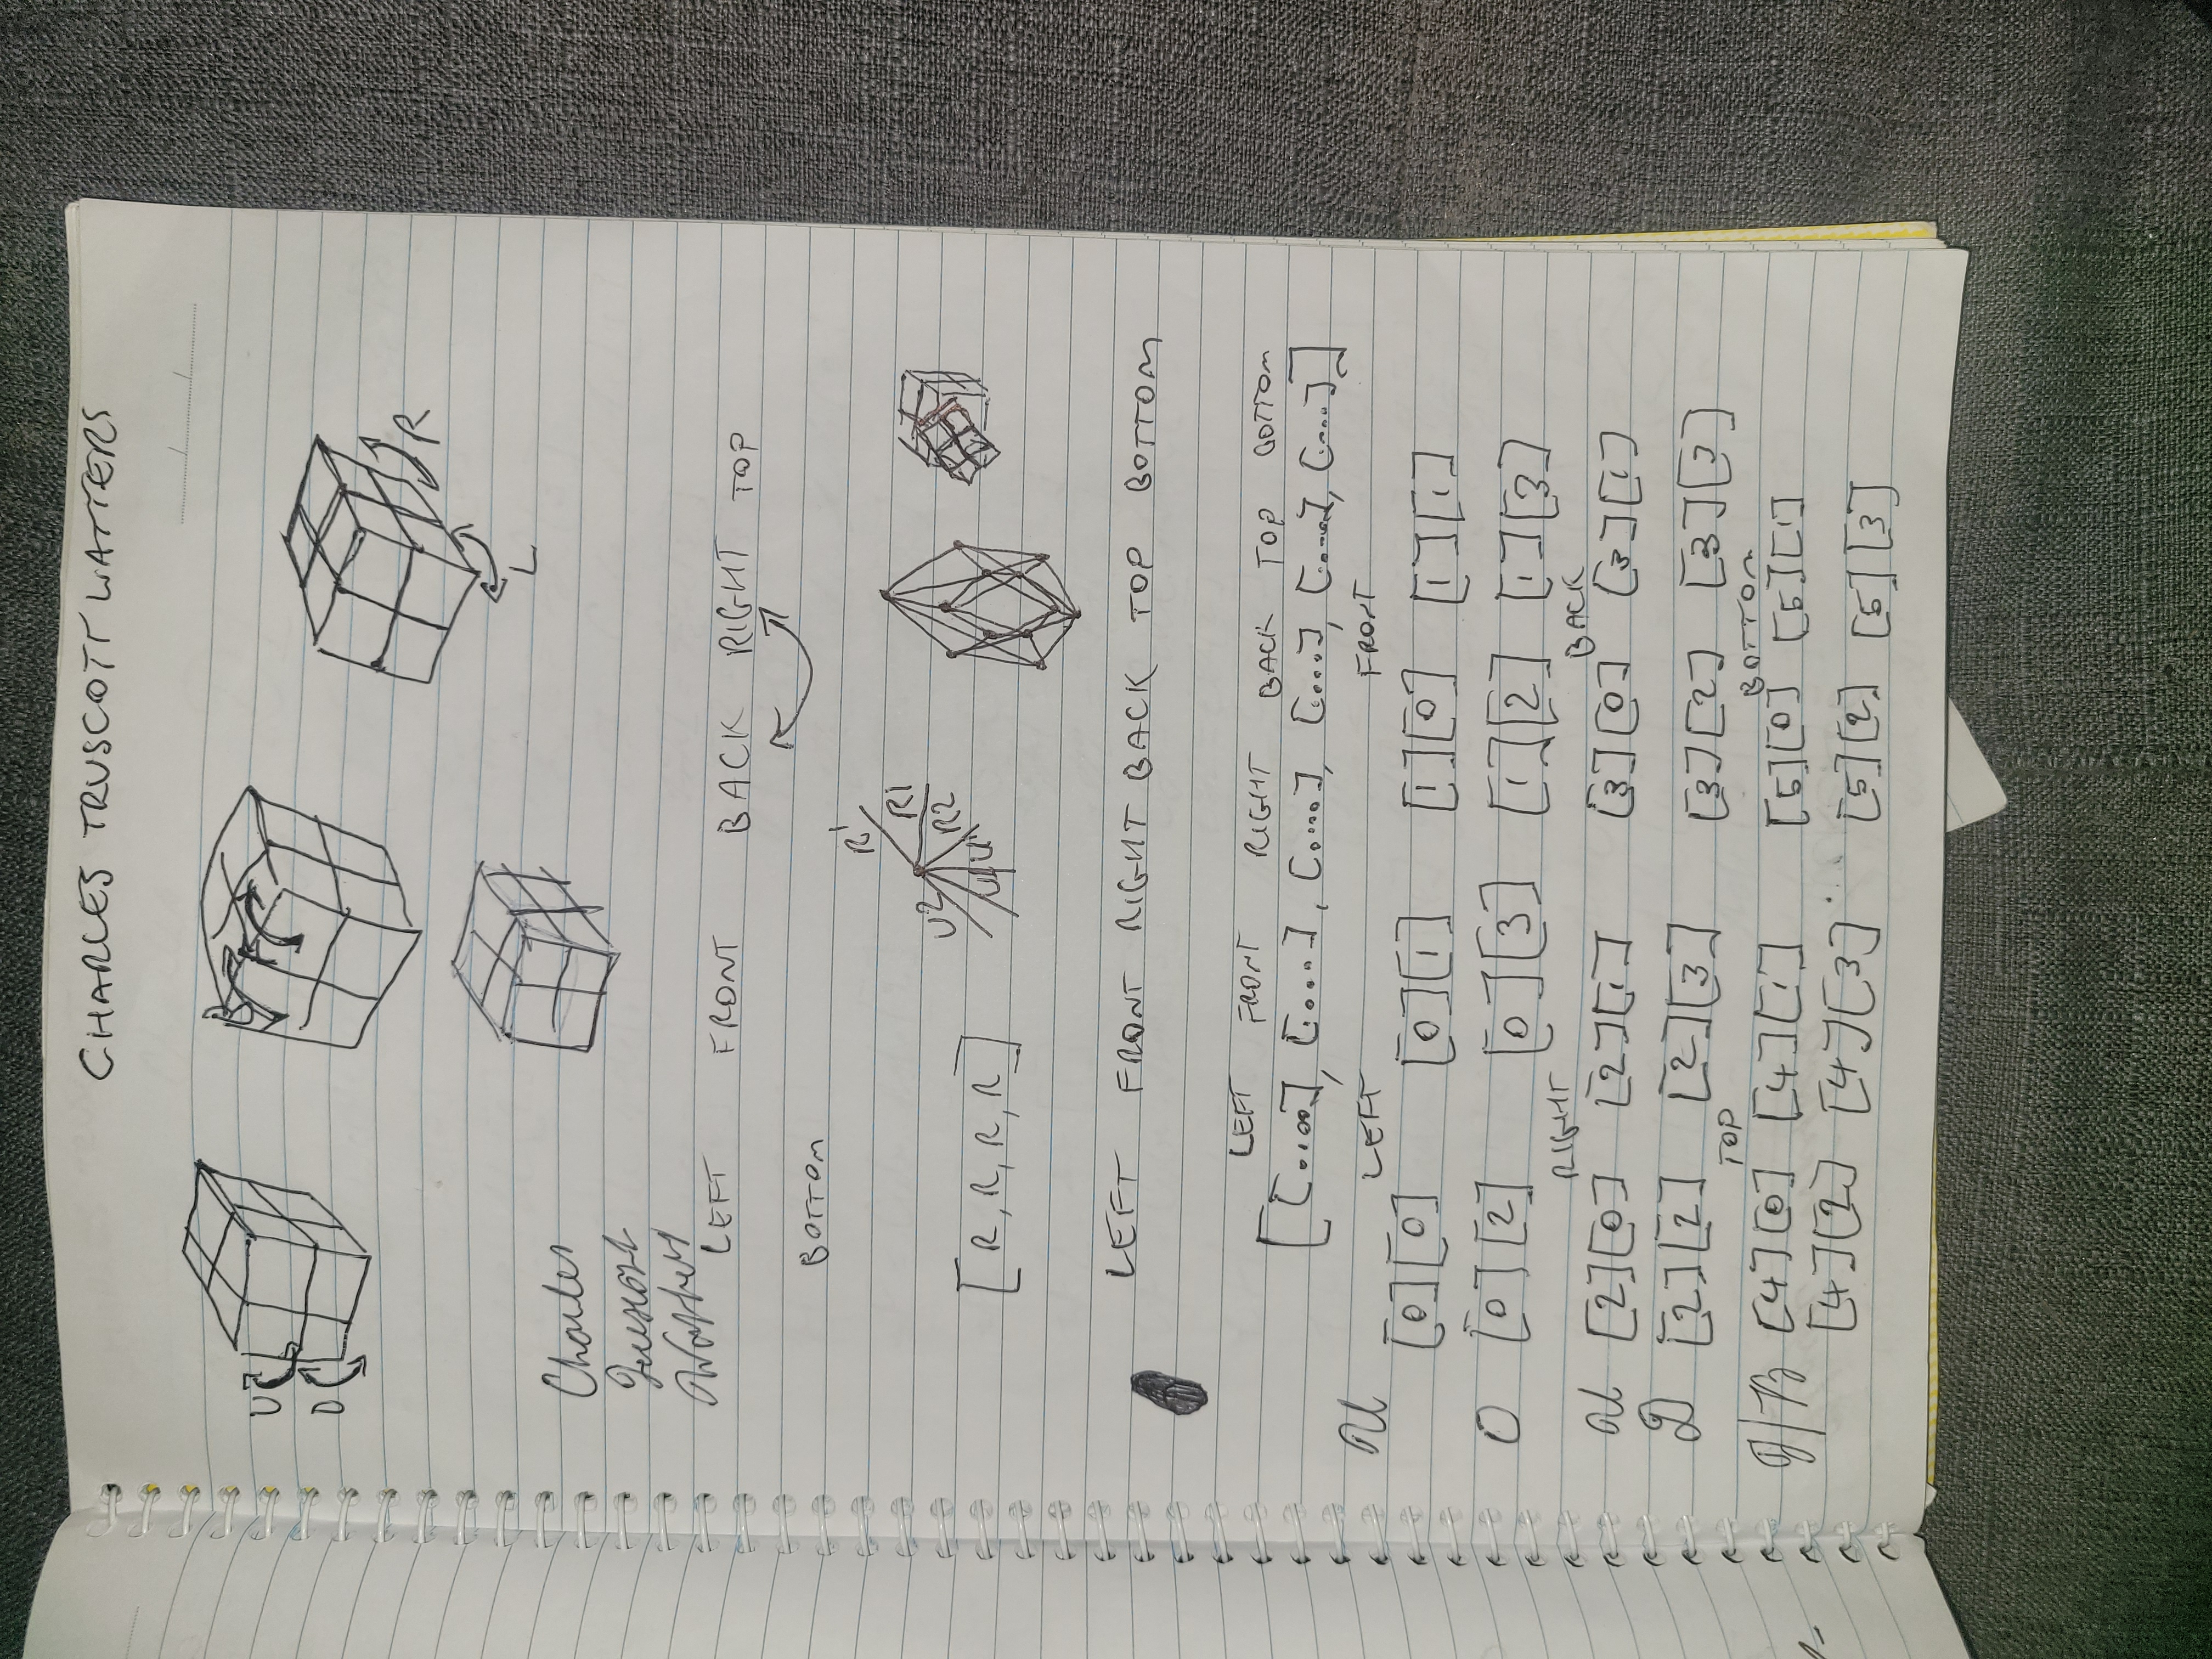 CHARLES TRUSCOTT WATTERS
U
D
R
L
Charles
Truscott
Watters
LEFT FRONT BACK RIGHT TOP
BOTTOM
R'
R1
R2
U2
U'
[R, R, R, R]
LEFT FRONT RIGHT BACK TOP BOTTOM
LEFT FRONT RIGHT BACK TOP BOTTOM
[[....], [....], [....], [....], [....], [....]]
LEFT FRONT
U [0][0] [0][1] [1][0] [1][1]
D [0][2] [0][3] [1][2] [1][3]
RIGHT BACK
U [2][0] [2][1] [3][0] [3][1]
D [2][2] [2][3] [3][2] [3][3]
TOP BOTTOM
T/B [4][0] [4][1] [5][0] [5][1]
[4][2] [4][3] [5][2] [5][3]